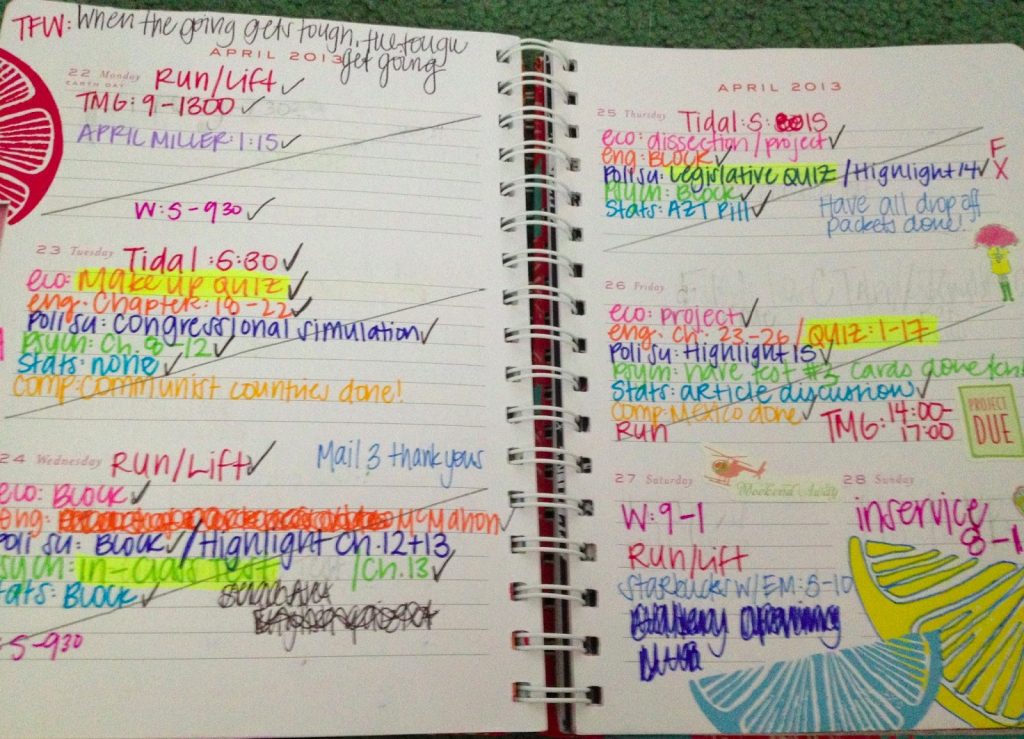 TFW: When the going gets tough, the tough
get going
APRIL 2013
22 Monday Run/Lift ✓
EARTH DAY
TMG: 9-1300 ✓
APRIL MILLER: 1:15 ✓
W: 5-930 ✓
23 Tuesday Tidal: 5:30 ✓
eco: Make up QUIZ ✓
eng: Chapter: 18-22 ✓
Poli su: congressional simulation ✓
Psych: Ch. 8-12 ✓
Stats: none ✓
comp: communist countries done!
24 Wednesday Run/Lift ✓
Mail 3 thank yous
eco: BLOCK ✓
eng: McMahon ✓
Poli su: BLOCK ✓/Highlight Ch. 12+13
Psych: in-class TEST /Ch. 13 ✓
Stats: BLOCK ✓
5-930
APRIL 2013
25 Thursday Tidal: 5:15
eco: dissection/project ✓
eng: BLOCK ✓
Poli su: Legislative QUIZ /Highlight 14 ✓
F
X
Psych: BLOCK ✓
Stats: AZT Pill ✓
Have all drop off
packets done!
26 Friday
eco: project ✓
eng: Ch. 23-26/QUIZ: 1-17
Poli su: Highlight 15 ✓
Psych: have test #3 cards done
Stats: article discussion ✓
comp: Mexico done ✓
Run
TMG: 14:00-
17:00
PROJECT
DUE
27 Saturday
Weekend Away
W: 9-1
Run/Lift
Starbucks W/EM: 5-10
28 Sunday
inservice
8-1